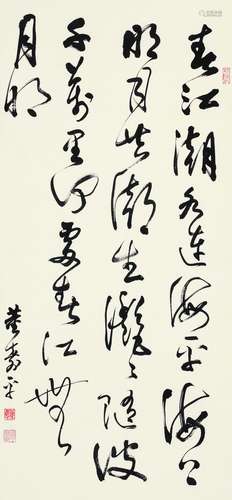 春江潮水连海平海上
明月共潮生滟滟随波
千万里何处春江无
月明
董寿平